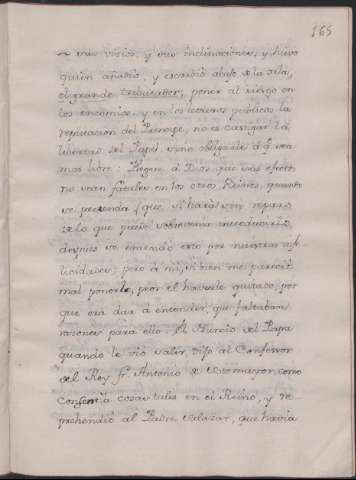 165
sus vicios, y sus inclinaciones, y huvo
quien añadio, y escribio abajo de la silla,
el grande tributador; poner al riesgo en
los encomios, y en los letreros publicos la
reputacion del Principe, no es castigar la
libertad del Papel, sino obligarle á q sea
mas libre: Plegue á Dios, que sus efectos
no sean fatales en los otros Reinos, quando
se pretenda (que si hará) sin reparo
de lo que puede sobrevenir
despues se enmendó esto por nuestras
; pero á mi, si bien me pareció
mal ponerle, peor el haverle quitado, por
que era dar á entender, que faltaban
razones para ello. El Nuncio del Papa
quando le vio salir, dijo al Confessor
del Rey fr. Antonio de Sotomayor, como
consentia cosas tales en el Reino, y re
prehendió al Padre Salazar, que havia